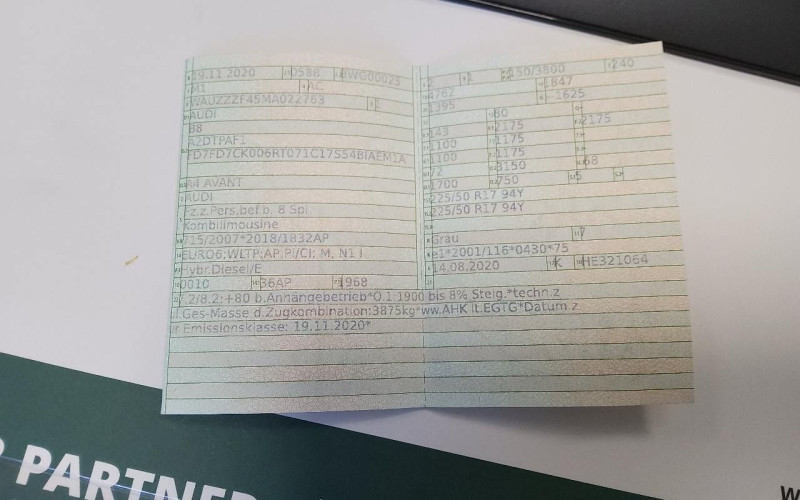 19.11.2020 0588 BWG00025
M1 AC
WAUZZZF45MA022763
AUDI
B8
A2DTPAF1
FD7FD7CK006RT071C17S54BIAEM1A
A4 AVANT
AUDI
Fz.z.Pers.bef.b. 8 Spl.
Kombilimousine
715/2007*2018/1832AP
EURO6;WLTP;AP;PI/CI; M, N1 I
Hybr.Diesel/E
0010 36AP 1968
150/3800 240
4762 1847
1395 -1625
60
143 2175 2175
1100 1175
1100 1175
72 3150 68
1700 750 5
225/50 R17 94Y
225/50 R17 94Y
Grau 7
e1*2001/116*0430*75
14.08.2020 K HE321064
7.2/8.2:+80 b.Anhängebetrieb*O.1 1900 bis 8% Steig.*techn.z
Ges-Masse d.Zugkombination:3875kg*ww.AHK lt.EGTG*Datum z
ur Emissionsklasse: 19.11.2020*
PARTNER
W